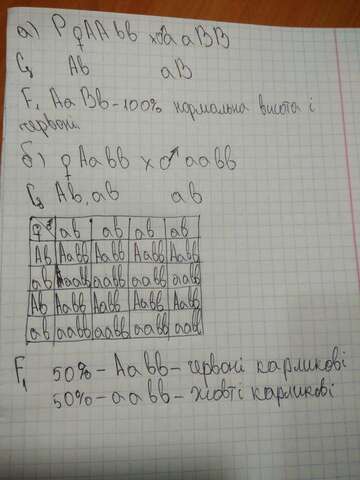 а) P ♀AAbb x ♂aaBB
G Ab aB
F₁ AaBb - 100% нормальна висота і
червоні.
б) ♀Aabb x ♂ aabb
G Ab, ab ab
♀♂ ab ab ab ab
Ab Aabb Aabb Aabb Aabb
ab aabb aabb aabb aabb
Ab Aabb Aabb Aabb Aabb
ab aabb aabb aabb aabb
F₁ 50% - Aabb - червоні карликові
50% - aabb - жовті карликові